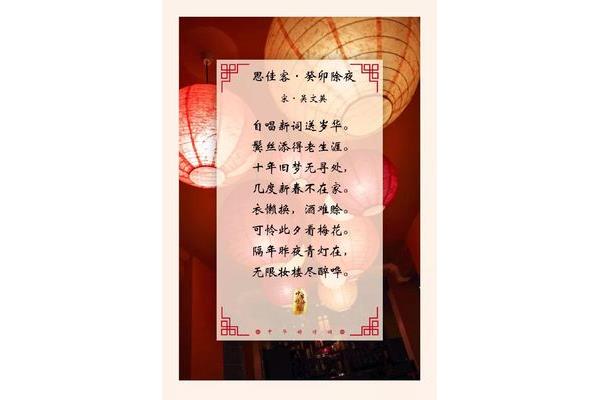 思佳客·癸卯除夜
宋·吴文英
自唱新词送岁华。
鬓丝添得老生涯。
十年旧梦无寻处，
几度新春不在家。
衣懒换，酒难赊。
可怜此夕看梅花。
隔年昨夜青灯在，
无限妆楼尽醉哗。
中华好诗词